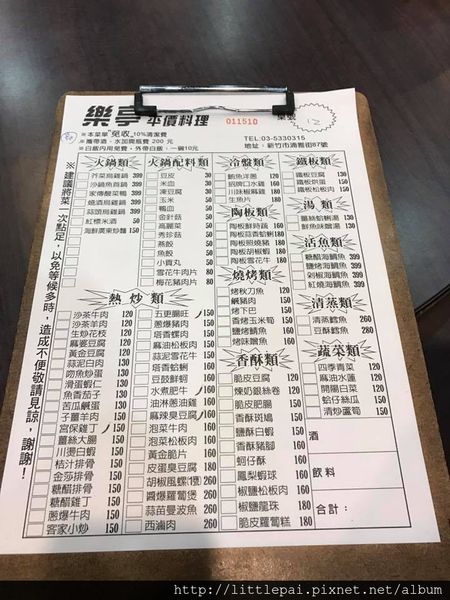 樂亭 平價料理
011510
桌號 12
※本菜單"免收"10%清潔費
※攜帶酒、水加開瓶費 200 元
※白飯內用免費，外帶白飯，一碗10元
TEL:03-5330315
地址：新竹市湳雅街87號
※建議將菜一次點足，以免等候多時，造成不便敬請見諒，謝謝！
火鍋類
芥菜烏雞鍋 399
沙鍋魚頭鍋 399
家傳酸菜鴨 399
燒酒烏雞鍋 399
蒜頭烏雞鍋 399
紅標米酒 50
海鮮廣東炒麵 150
火鍋配料類
豆皮 30
米血 30
凍豆腐 30
玉米 50
鴨血 50
金針菇 50
高麗菜 50
秀珍菇 50
燕餃 50
魚餃 50
小貢丸 50
雪花牛肉片 80
梅花豬肉片 80
冷盤類
鮪魚洋蔥
招牌口水雞
川味椒麻雞
生魚片
陶板類
陶板鮮時蔬
陶板蒜香蛤蜊 180
陶板照燒豬 180
陶板胡椒蝦 180
陶板雪花牛 180
燒烤類
烤秋刀魚
鹹豬肉
烤下巴
香烤玉米筍 150
鹽烤鯖魚 160
烤味噌魚 160
香酥類
脆皮豆腐
煉奶銀絲卷
脆皮肥腸 150
香酥斑鳩 150
鹽酥白蝦 150
香酥豬腳 160
蚵仔酥 160
鳳梨蝦球 160
椒鹽松板肉 160
椒鹽龍珠 180
脆皮蘿蔔糕 180
鐵板類
鐵板豆腐 130
鐵板烘蛋 150
鐵板松板肉 150
湯類
薑絲蛤蜊湯 150
鮮魚味噌湯 130
活魚類
糖醋海鱺魚 399
鹽烤海鱺魚 399
剁椒海鱺魚 399
紅燒海鱺魚 399
清蒸類
清蒸鱈魚 260
豆酥鱈魚 280
蔬菜類
四季青菜 120
麻油水蓮 120
開陽白菜 120
蛤仔絲瓜 150
清炒蘆筍 150
熱炒類
沙茶牛肉 120
沙茶羊肉 120
生炒花枝 120
麻婆豆腐 120
黃金豆腐 120
蒜泥白肉 130
吻魚炒蛋 130
滑蛋蝦仁 130
魚香茄子 130
苦瓜鹹蛋 130
子薑羊肉 130
宮保雞丁 150
薑絲大腸 150
川燙白蝦 150
桔汁排骨 150
金莎排骨 150
糖醋排骨 150
糖醋雞丁 150
蔥爆牛肉 150
客家小炒 150
五更腸旺 150
蔥爆豬肉 150
塔香螺肉 150
麻油松板肉 150
蒜泥雪花牛 150
塔香蛤蜊 160
豆鼓鮮蚵 160
水煮肥牛 160
油淋蔥油雞 160
麻辣臭豆腐 160
泡菜牛肉 160
泡菜松板肉 160
黃金脆片 160
皮蛋臭豆腐 180
胡椒風螺(煲) 180
醬爆蘿蔔煲 200
蒜苗曼波魚 260
西滷肉 260
酒
飲料
合計：
http://littlepai.pixnet.net/album